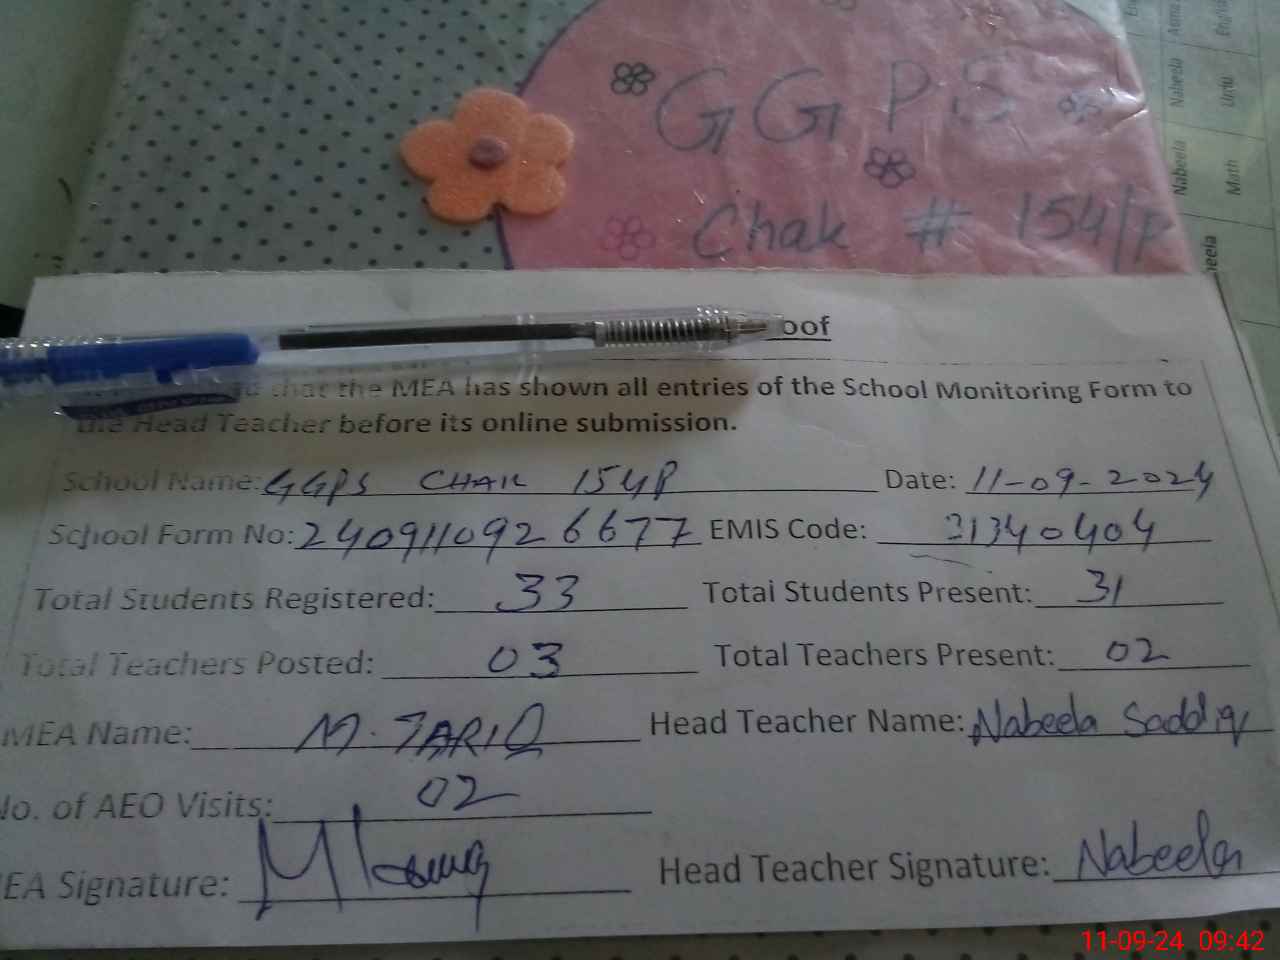 GGPS
Chak # 154/P
oof
that the MEA has shown all entries of the School Monitoring Form to
the Head Teacher before its online submission.
School Name: GGPS CHAK 154P Date: 11-09-2024
School Form No: 2409110926677 EMIS Code: 31340404
Total Students Registered: 33 Total Students Present: 31
Total Teachers Posted: 03 Total Teachers Present: 02
MEA Name: M. TARIQ Head Teacher Name: Nabeela Saddiq
No. of AEO Visits: 02
EA Signature: Head Teacher Signature: Nabeela
Nabeela Urdu
Nabeela Math
eela
11-09-24 09:42